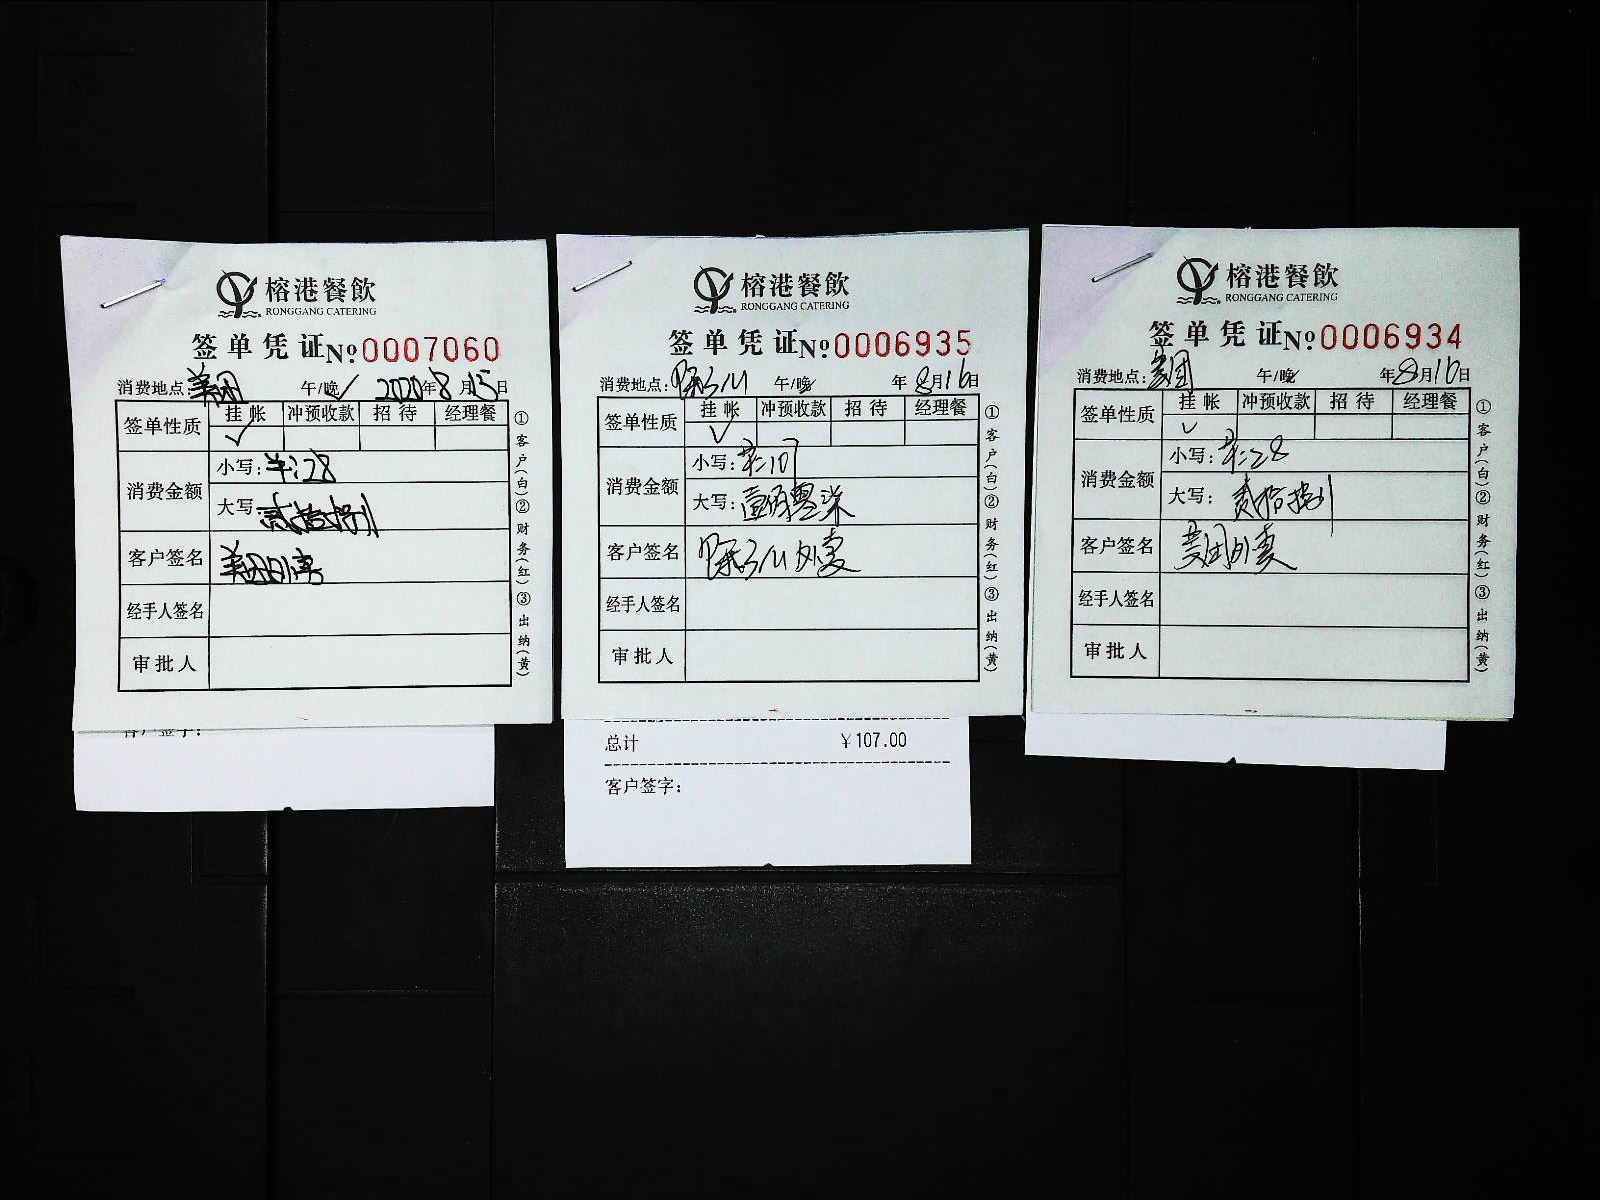 榕港餐飲
RONGGANG CATERING
签单凭证 No 0007060
消费地点: 美团 午/晚 ✓ 2020年8月15日
签单性质 挂帐 冲预收款 招待 经理餐
✓
消费金额 小写: 羊:28
大写: 贰拾捌
客户签名 美团外卖
经手人签名
审批人
①客户(白)②财务(红)③出纳(黄)
客户签字:
榕港餐飲
RONGGANG CATERING
签单凭证 No 0006935
消费地点: 午/晚 年8月16日
签单性质 挂帐 冲预收款 招待 经理餐
✓
消费金额 小写: 107
大写: 壹佰零柒
客户签名 外卖
经手人签名
审批人
①客户(白)②财务(红)③出纳(黄)
总计 ¥107.00
客户签字:
榕港餐飲
RONGGANG CATERING
签单凭证 No 0006934
消费地点: 美团 午/晚 年8月16日
签单性质 挂帐 冲预收款 招待 经理餐
✓
消费金额 小写: 28
大写: 贰拾捌
客户签名 美团外卖
经手人签名
审批人
①客户(白)②财务(红)③出纳(黄)